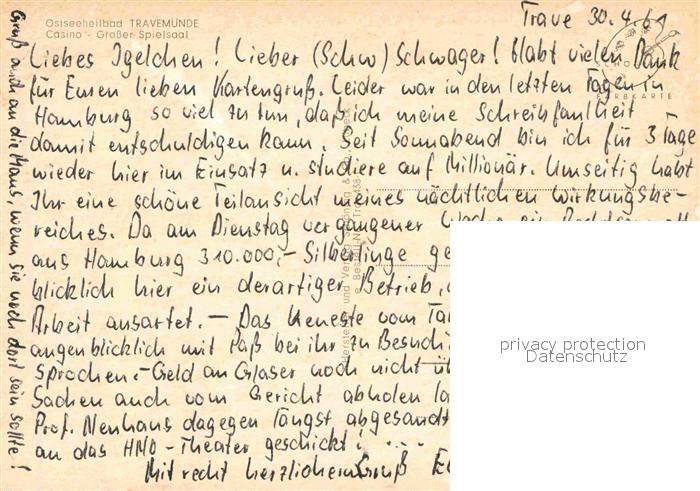 Ostseeheilbad TRAVEMÜNDE
Casino - Großer Spielsaal
Trave 30.4.61
Liebes Igelchen! Lieber (Schw) Schwager! Habt vielen Dank
für Euren lieben Kartengruß. Leider war in den letzten Tagen in
Hamburg so viel zu tun, daß ich meine Schreibfaulheit
damit entschuldigen kann. Seit Sonnabend bin ich für 3 Tage
wieder hier im Einsatz u. studiere auf Millionär. Umseitig habt
Ihr eine schöne Teilansicht meines nächtlichen Wirkungsbe-
reiches. Da am Dienstag vergangener Woche ein
aus Hamburg 310.000,- Silberlinge
blicklich hier ein derartiger Betrieb,
Arbeit ausartet. - Das Neueste vom
augenblicklich mit Paß bei ihr zu
sprochen. - Geld an Glaser noch nicht
Sachen auch vom Gericht abholen
Prof. Neuhaus dagegen längst abgesandt
an das HNO-Theater geschickt! ...
Mit recht herzlichem Gruß
Gruß auch an die Maus, wenn sie noch dort sein sollte!
privacy protection
Datenschutz